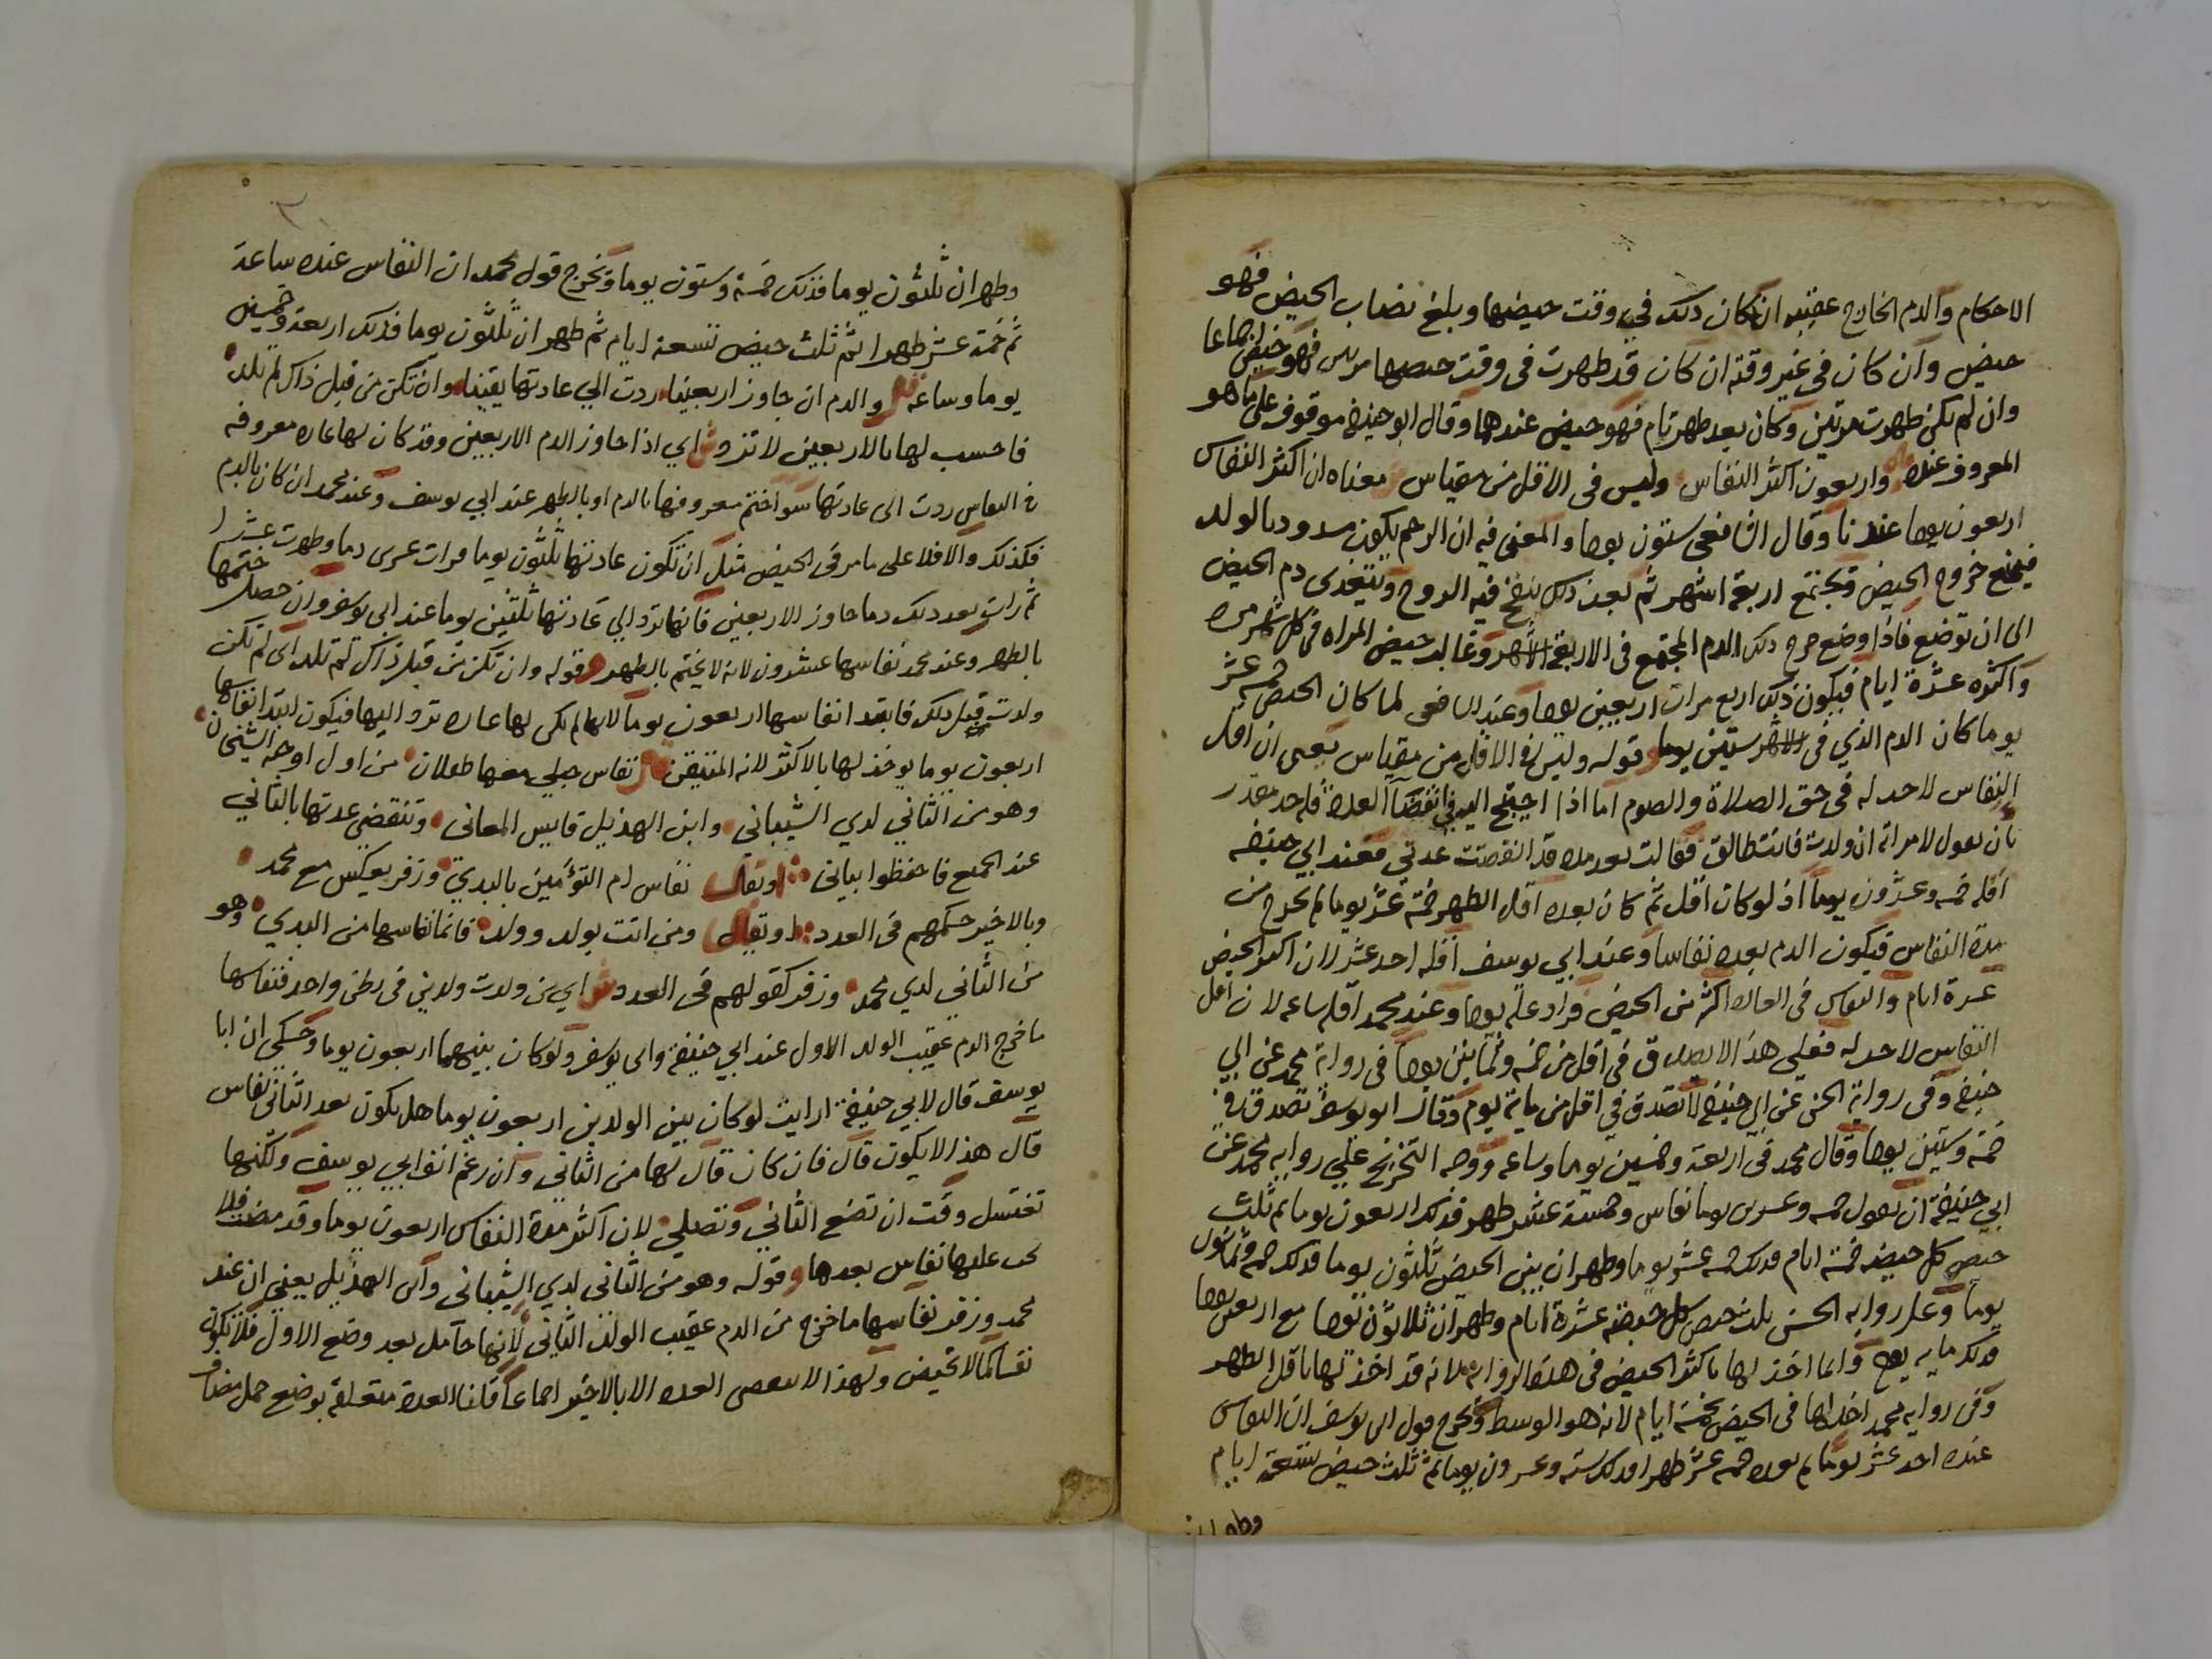 الاحكام والدم الخارج عقيبه ان كان ذلك في وقت حيضها وبلغ نصاب الحيض فهو
حيض وان كان في غير وقته ان كان قد طهرت في وقت حيضها مرتين فهو حيض اجماعا
وان لم يكن طهرت مرتين وكان بعد طهر تام فهو حيض عندهما وقال ابو حنيفة موقوف على ما هو
المعروف عنده واربعون اكثر النفاس وليس في الاقل من مقياس معناه ان اكثر النفاس
اربعون يوما عندنا وقال الشافعي ستون يوما والمعنى فيه ان الرحم يكون مسدودا بالولد
فيمنع خروج الحيض فيجتمع اربعة اشهر ثم بعد ذلك ينفخ فيه الروح ويتغذى دم الحيض
الى ان توضع فاذا وضع خرج ذلك الدم المجتمع في الاربعة الاشهر وغالب حيض المراه في كل شهر مره
واكثره عشرة ايام فيكون ذلك اربع مرات اربعين يوما وعند الشافعي لما كان الحيض خمسة عشر
يوما كان الدم الذي في الاشهر ستين يوما قوله وليس في الاقل من مقياس يعني ان اقل
النفاس لاحد له في حق الصلاة والصوم اما اذا احتيج اليه في انقضآ العدة فله حد مقدر
بان يقول لامراته ان ولدت فانت طالق فقالت بعد مده قد انقضت عدتي فعند ابي حنيفه
اقله خمسه وعشرون يوما اذ لو كان اقل ثم كان بعده اقل الطهر خمسة عشر يوما لم يخرج من
مدة النفاس فيكون الدم بعده نفاسا وعند ابي يوسف اقله احد عشر لان اكثر الحيض
عشرة ايام والنفاس في العادة اكثر من الحيض فزاد عليه يوما وعند محمد اقله ساعه لان اقل
النفاس لاحد له فعلى هذا لا تصدق في اقل من خمسه وثمانين يوما في رواية محمد عن ابي
حنيفه وفي رواية الحسن عن ابي حنيفه لا تصدق في اقل من ماية يوم وقال ابو يوسف تصدق في
خمسة وستين يوما وقال محمد في اربعة وخمسين يوما وساعه ووجه التخريج على روايه محمد عن
ابي حنيفة ان يقول خمسه وعشرين يوما نفاس وخمسة عشر طهر فذلك اربعون يوما ثم ثلث
حيض كل حيضه خمسة ايام فذلك خمسه عشر يوما وطهران بين الحيض ثلثون يوما فذلك خمسه وثمانون
يوما وعلى روايه الحسن ثلث حيض كل حيضه عشرة ايام وطهران ثلاثون يوما مع اربعين يوما
فذلك مايه يوم وانما اخذ لها باكثر الحيض في هذه الروايه لانه قد اخذ لها باقل الطهر
وفي روايه محمد اخذ لها في الحيض بخمسة ايام لانه هو الوسط وتخرج قول ابي يوسف ان النفاس
عنده احد عشر يوما ثم بعده خمسه عشر طهرا فذلك ستة وعشرون يوما ثم ثلث حيض تسعة ايام
وطهران
٣
وطهران ثلثون يوما فذلك خمسة وستون يوما وتخرج قول محمد ان النفاس عنده ساعة
ثم خمسة عشر طهرا ثم ثلث حيض تسعة ايام ثم طهران ثلثون يوما فذلك اربعة وخمسين
يوما وساعه والدم ان جاوز اربعينا ردت الي عادتها يقينا وان تكن من قبل ذاك لم تلد
فاحسب لها بالاربعين لا تزد ش اي اذا جاوز الدم الاربعين وقد كان لها عاده معروفه
في النفاس ردت الى عادتها سوا ختم معروفها بالدم او بالطهر عند ابي يوسف وعند محمد ان كان بالدم
فكذلك والا فلا على ما مر في الحيض مثل ان تكون عادتها ثلثون يوما فرات عشرين دما وطهرت عشرا
ثم رات بعد ذلك دما جاوز الاربعين فانها ترد الي عادتها ثلثين يوما عند ابي يوسف وان حصل ختمها
بالطهر وعند محمد نفاسها عشرون لانه لا يختم بالطهر وقوله وان تكن من قبل ذاك لم تلد اي لم تكن
ولدت قبل ذلك فابتدا نفاسها اربعون يوما لانها لم يكن لها عاده ترد اليها فيكون ابتدا نفاسها
اربعون يوما يوخذ لها بالاكثر لانه المتيقن ص نفاس حبلى معها طفلان من اول اوجبه الشيخان
وهو من الثاني لدي الشيباني وابن الهذيل قايس المعاني وتنقضي عدتها بالثاني
عند الجميع فاحفظوا بياني او نقال نفاس ام التؤمين بالبدي وزفر بعكس مع محمد
وبالاخير حكمهم في العدد او نقال ومن اتت بولد وولد فانما نفاسها من البدي وهو
من الثاني لدي محمد وزفر كقولهم في العدد ش اي من ولدت ولدين في بطن واحد فنفاسها
ما خرج الدم عقيب الولد الاول عند ابي حنيفة وابي يوسف ولو كان بينهما اربعون يوما وحكي ان ابا
يوسف قال لابي حنيفة ارايت لو كان بين الولدين اربعون يوما هل يكون بعد الثاني نفاس
قال هذا لا يكون قال فان كان قال لها من الثاني وان رغم انف ابي يوسف ولكنها
تغتسل وقت ان تضع الثاني وتصلي لان اكثر مدة النفاس اربعون يوما وقد مضت فلا
يجب عليها نفاس بعدها وقوله وهو من الثاني لدي الشيباني وابن الهذيل يعني ان عند
محمد وزفر نفاسها ما خرج من الدم عقيب الولد الثاني لانها حامل بعد وضع الاول فلا تكون
نفسا كما لا تحيض ولهذا لا تنقضي العده الا بالاخير اجماعا قلنا العدة متعلقة بوضع حمل مضاف